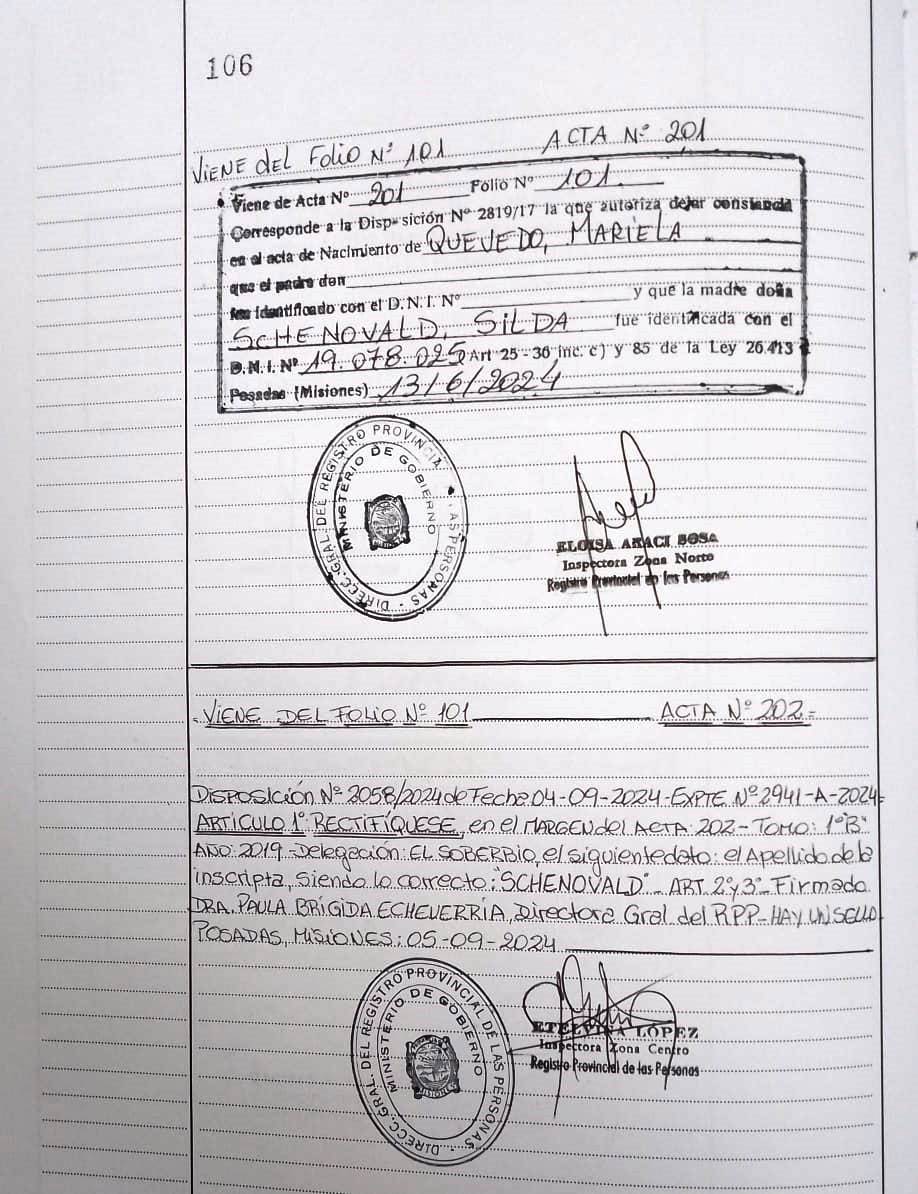 106
VIENE del FOLIO Nº 101 ACTA Nº 201
Viene de Acta Nº 201 Folio Nº 101
Corresponde a la Disposición Nº 2819/17 la que autoriza dejar constancia
en el acta de Nacimiento de QUEVEDO, MARIELA
que el padre don
fue identificado con el D. N. I. Nº y que la madre doña
SCHENOVALD, SILDA fue identificada con el
D. N. I. Nº 19.078.025 Art 25 - 36 inc. c) y 85 de la Ley 26.413
Posadas (Misiones) 13/6/2024
DIRECC. GRAL. DEL REGISTRO PROVINCIAL AS PERSONAS
MINISTERIO DE GOBIERNO
ELOISA ARACI SOSA
Inspectora Zona Norte
Registro Provincial de las Personas
VIENE DEL FOLIO Nº 101 ACTA Nº 202=
DISPOSICIÓN Nº 2058/2024 de Fecha 04-09-2024-EXPTE. Nº 2941-A-2024=
ARTICULO 1º RECTIFÍQUESE, en el MARGEN del ACTA: 202 - TOMO: 1º"B"
AÑO: 2019 - Delegación: EL SOBERBIO, el siguiente dato: el Apellido de la
inscripta, siendo lo correcto: "SCHENOVALD" - ART. 2º y 3º - Firmado
DRA. PAULA BRIGIDA ECHEVERRÍA, Directora Gral del RPP - HAY UN SELLO
POSADAS, MISIONES: 05-09-2024
DIRECC. GRAL. DEL REGISTRO PROVINCIAL DE LAS PERSONAS
MINISTERIO DE GOBIERNO
MISIONES
ETELVINA LOPEZ
Inspectora Zona Centro
Registro Provincial de las Personas